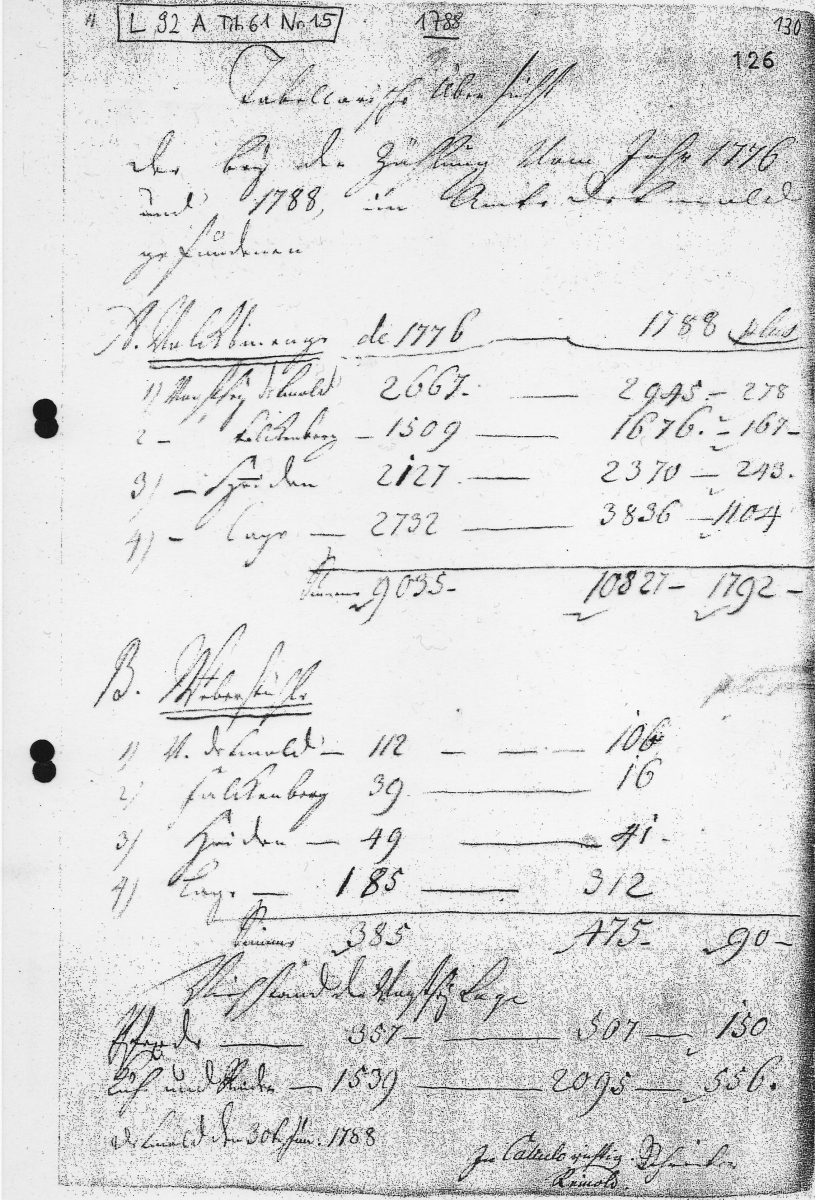 L 92 A Tit. 61 Nr. 15 1788 130
126
Tabellarische Übersicht
der bey der Zählung vom Jahr 1776
und 1788, im Amte Detmold
gefundenen
A. Volcksmenge de 1776 1788 plus
1) Vogthey Detmold 2667. — 2945. — 278
2 — Falckenberg — 1509 — 1676. — 167 —
3) — Heiden 2127 — 2370 — 243.
4) — Lage — 2732 — 3836 — 1104
Summa 9035 — 10827 — 1792 —
B. Weberstühle
1) V. Detmold — 112 — — — 106
2) Falckenberg 39 — 16
3) Heiden — 49 — 41 -
4) Lage — 185 — 312
Summa 385 475 — 90 —
Viehstand der Vogthey Lage
Pferde — 357 — 507 — 150
Küh und Rinder — 1539 — 2095 — 556.
Detmold den 30t Jun: 1788
In Calculo richtig.
Reinold.